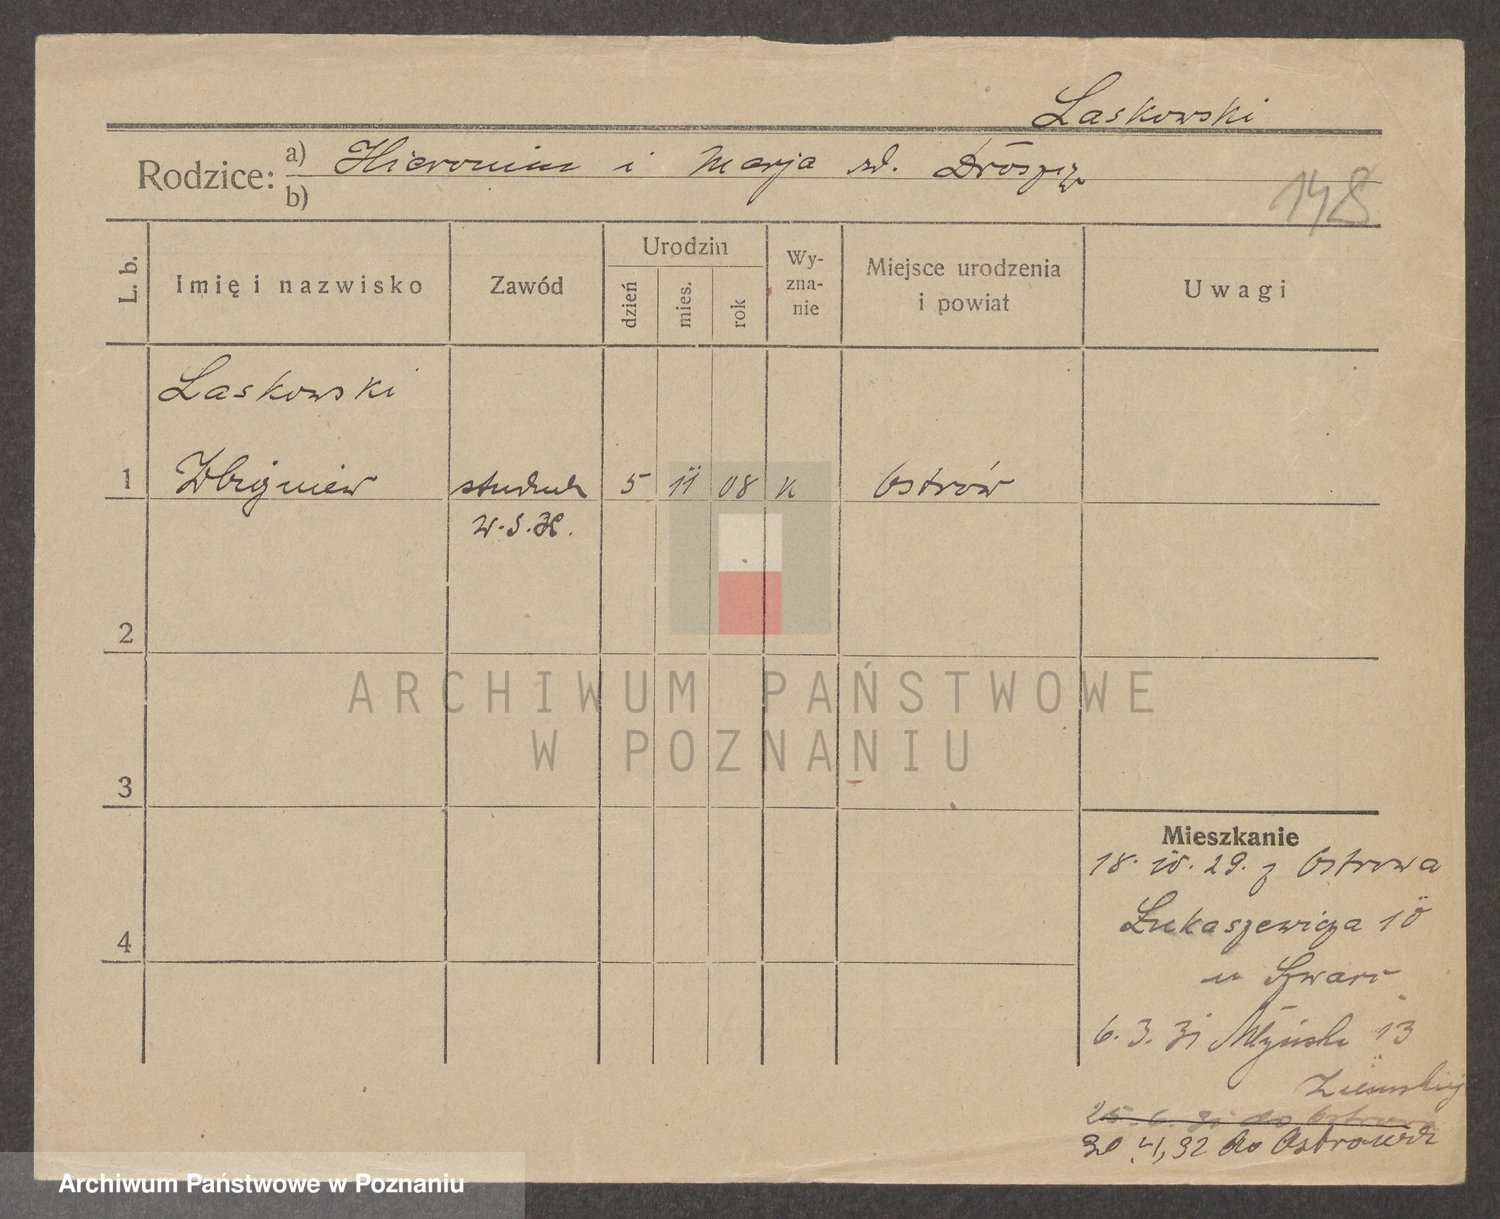 Laskowski
Rodzice: a) Hieronim i Marja
b)
148
L. b.
Imię i nazwisko
Zawód
Urodzin
dzień
mies.
rok
Wy-
zna-
nie
Miejsce urodzenia
i powiat
Uwagi
Laskowski
1 Zbigniew student 5 11 08 K Ostrów
W.S.H.
2
3
4
ARCHIWUM PAŃSTWOWE
W POZNANIU
Mieszkanie
18. 10. 29. z Ostrowa
Łukaszewicza 10
u Szwarc
6. 3. 31 Młyńska 13
25. 6. 31 do Ostrowa
30 4, 32 do Ostrowa
Archiwum Państwowe w Poznaniu